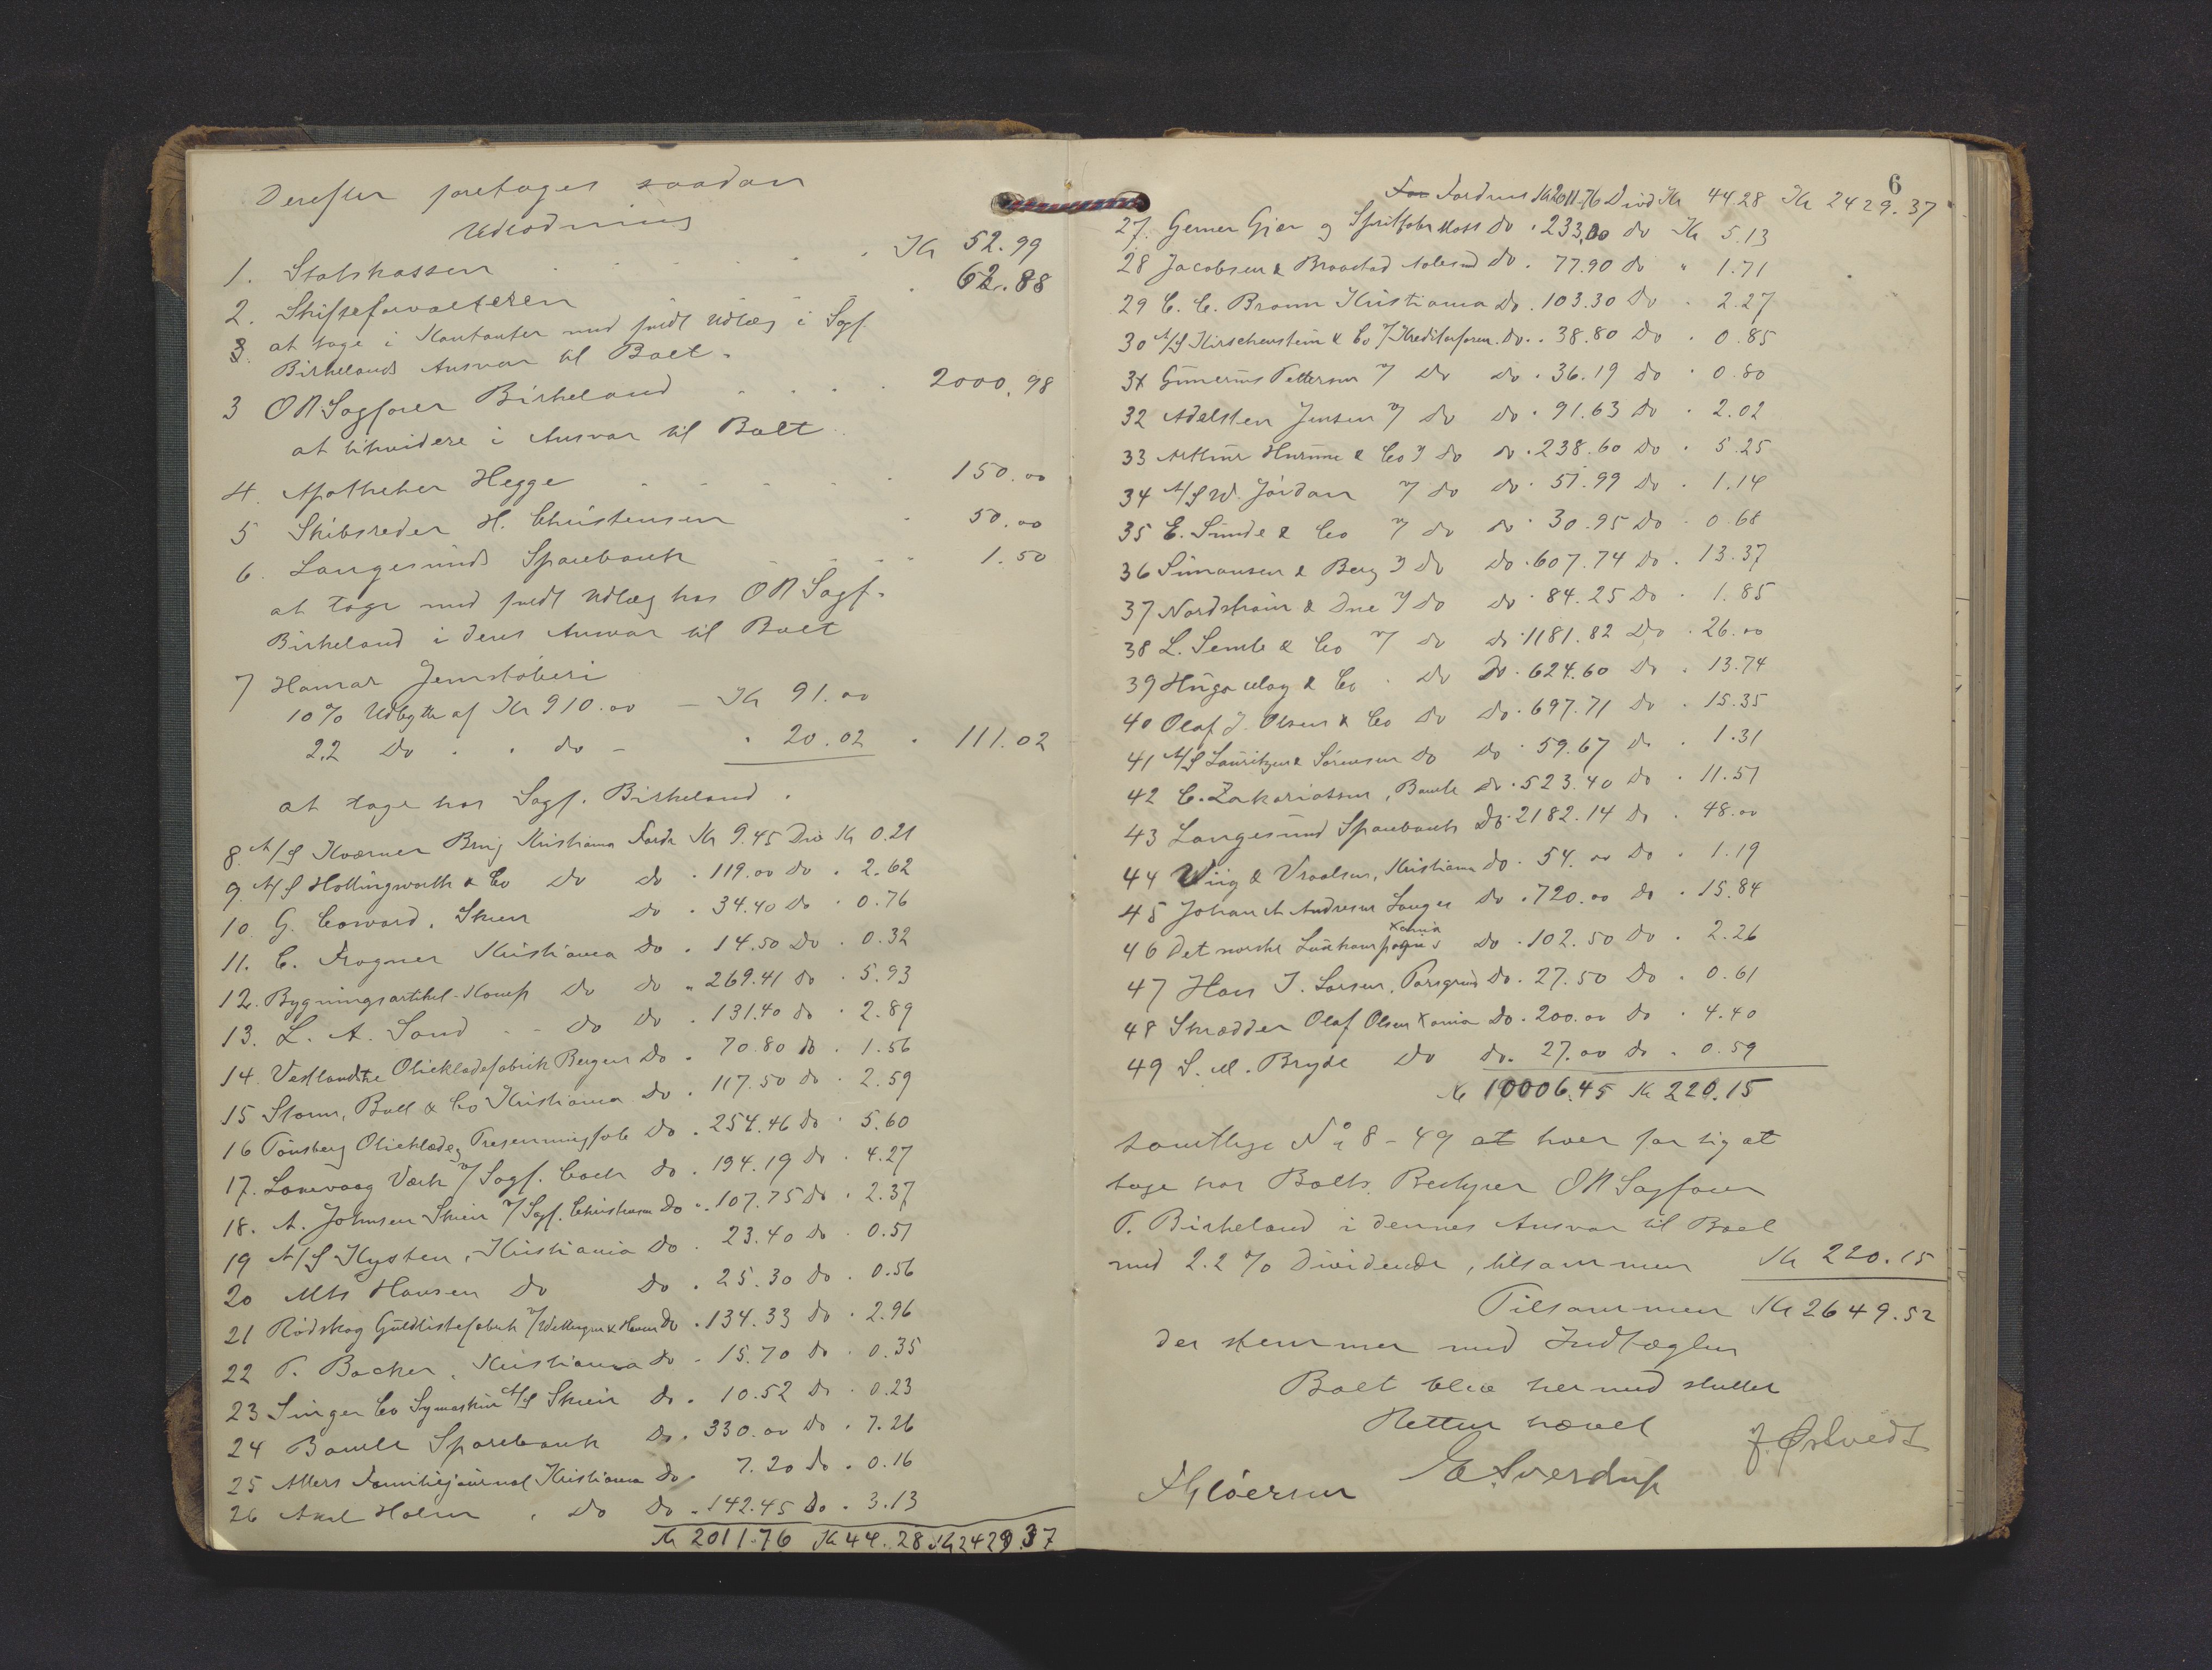 Derefter foretages saadan
Udlodning
1. Statskassen . . . . . . Kr 52.99
2. Skifteforvalteren . 62.88
3. at tage i Kontanter med fuldt Udlæg i Sagf.
Birkelands Ansvar til Boet.
3 ORSagfører Birkeland . . . . 2000.98
at likvidere i Ansvar til Boet
4. Apotheker Hegge . . . . . 150.00
5 Skibsreder H. Christensen . 50.00
6. Langesunds Sparebank . . . 1.50
at tage med fuldt Udlæg hos OR Sagf.
Birkeland i deres Ansvar til Boet
7 Hamar Jernstøberi
10% Udbytte af Kr 910.00 — Kr 91.00
2.2 Do . . do — . 20.02 . 111.02
at tage hos Sagf. Birkeland.
8. A/S Kværner Brug Kristiania Fordr Kr 9.45 Div Kr 0.21
9. A/S Hollingworth & Co Do Do . 119.00 Do . 2.62
10. G. Coward, Skien Do . 34.40 Do . 0.76
11. C. Frogner Kristiania Do . 14.50 Do . 0.32
12. Bygningsartikel-Komp Do Do . 269.41 do . 5.93
13. L. A. Sand - - Do Do . 131.40 do . 2.89
14. Vestlandske Oliekladefabrik Bergen Do . 70.80 do . 1.56
15 Storm, Bull & Co Kristiania Do . 117.50 do . 2.59
16 Tønsberg Olieklæde, Presenningfab Do . 254.46 Do . 5.60
17. Lanevaag Værk v/ Sagf. Coch do . 194.19 Do . 4.27
18. A. Johnsen Skien v/ Sagf. Christensen Do . 107.75 Do . 2.37
19 A/S Kysten, Kristiania Do . 23.40 Do . 0.51
20 Mts Hansen Do Do . 25.30 Do . 0.56
21 Rødskog Guldlistefabrik v/ & Hansen Do . 134.33 Do . 2.96
22 T. Backer, Kristiania do . 15.70 Do . 0.35
23 Singer Co Symaskin A/S Skien Do . 10.52 Do . 0.23
24 Bamble Sparebank Do . 330.00 Do . 7.26
25 Allers Familiejournal Kristiania Do . 7.20 do . 0.16
26 Axel Holm, Do Do . 142.45 Do . 3.13
Kr 2011.76 Kr 44.28 Kr 2429.37
6
For Fordrin Kr 2011.76 Divid Kr 44.28 Kr 2429.37
27. Gerner Gjær og Spritfabr Moss do . 233,00 do Kr 5.13
28 Jacobsen & Braastad Aalesund Do . 77.90 do " 1.71
29 C. C. Bronn Kristiania Do . 103.30 Do . 2.27
30 A/S Hirschenstein & Co v/ Kreditorforen. Do . 38.80 Do . 0.85
31 Gunerius Pettersen v/ Do Do . 36.19 do . 0.80
32 Adelsten Jensen v/ do do . 91.63 do . 2.02
33 Arthur Hurum & Co v/ do do . 238.60 Do . 5.25
34 A/S W. Jordan v/ do do . 51.99 Do . 1.14
35 E. Sunde & Co v/ do do . 30.95 Do . 0.68
36 Simonsen & Berg v/ Do Do . 607.74 Do . 13.37
37 Nordstrøm & Due v/ do do . 84.25 Do . 1.85
38 L. Semb & Co v/ do do . 1181.82 Do . 26.00
39 Hugo May & Co . Do Do . 624.60 Do . 13.74
40 Olaf J. Olsen & Co do Do . 697.71 Do . 15.35
41 A/S Lauritzen & Sørensen Do Do . 59.67 Do . 1.31
42 C. Zakariassen, Bamle do . 523.40 Do . 11.51
43 Langesund Sparebank Do . 2182.14 Do . 48.00
44 Wiig & Vraalsen, Kristiania Do . 54.00 Do . 1.19
45 Johan A Andresen Langes do . 720.00 do . 15.84
46 Det norske Luxkompagni Xania Do . 102.50 Do . 2.26
47 Hans J. Larsen, Porsgrund Do . 27.50 Do . 0.61
48 Skrædder Olaf Olsen Xania Do . 200.00 Do . 4.40
49 S. M. Bryde Do do . 27.00 do . 0.59
Kr 10006.45 Kr 220.15
samtlige No 8 - 49 at hver for sig at
tage hos Boets Bestyrer OR Sagfører
T. Birkeland i dennes Ansvar til Boet
med 2.2 % Dividende, tilsammen Kr 220.15
Tilsammen Kr 2649.52
der stemmer med Indtægten
Boet blev hermed sluttet
Retten hævet
E Sverdrup J. Østvedt